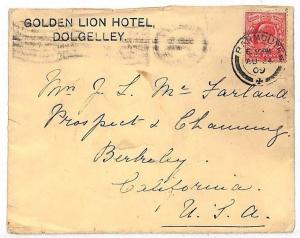 GOLDEN LION HOTEL,
DOLGELLEY.
BARMOUTH
09
Mrs J. L. Mc Farland
Prospect & Channing
Berkeley
California
U.S.A.